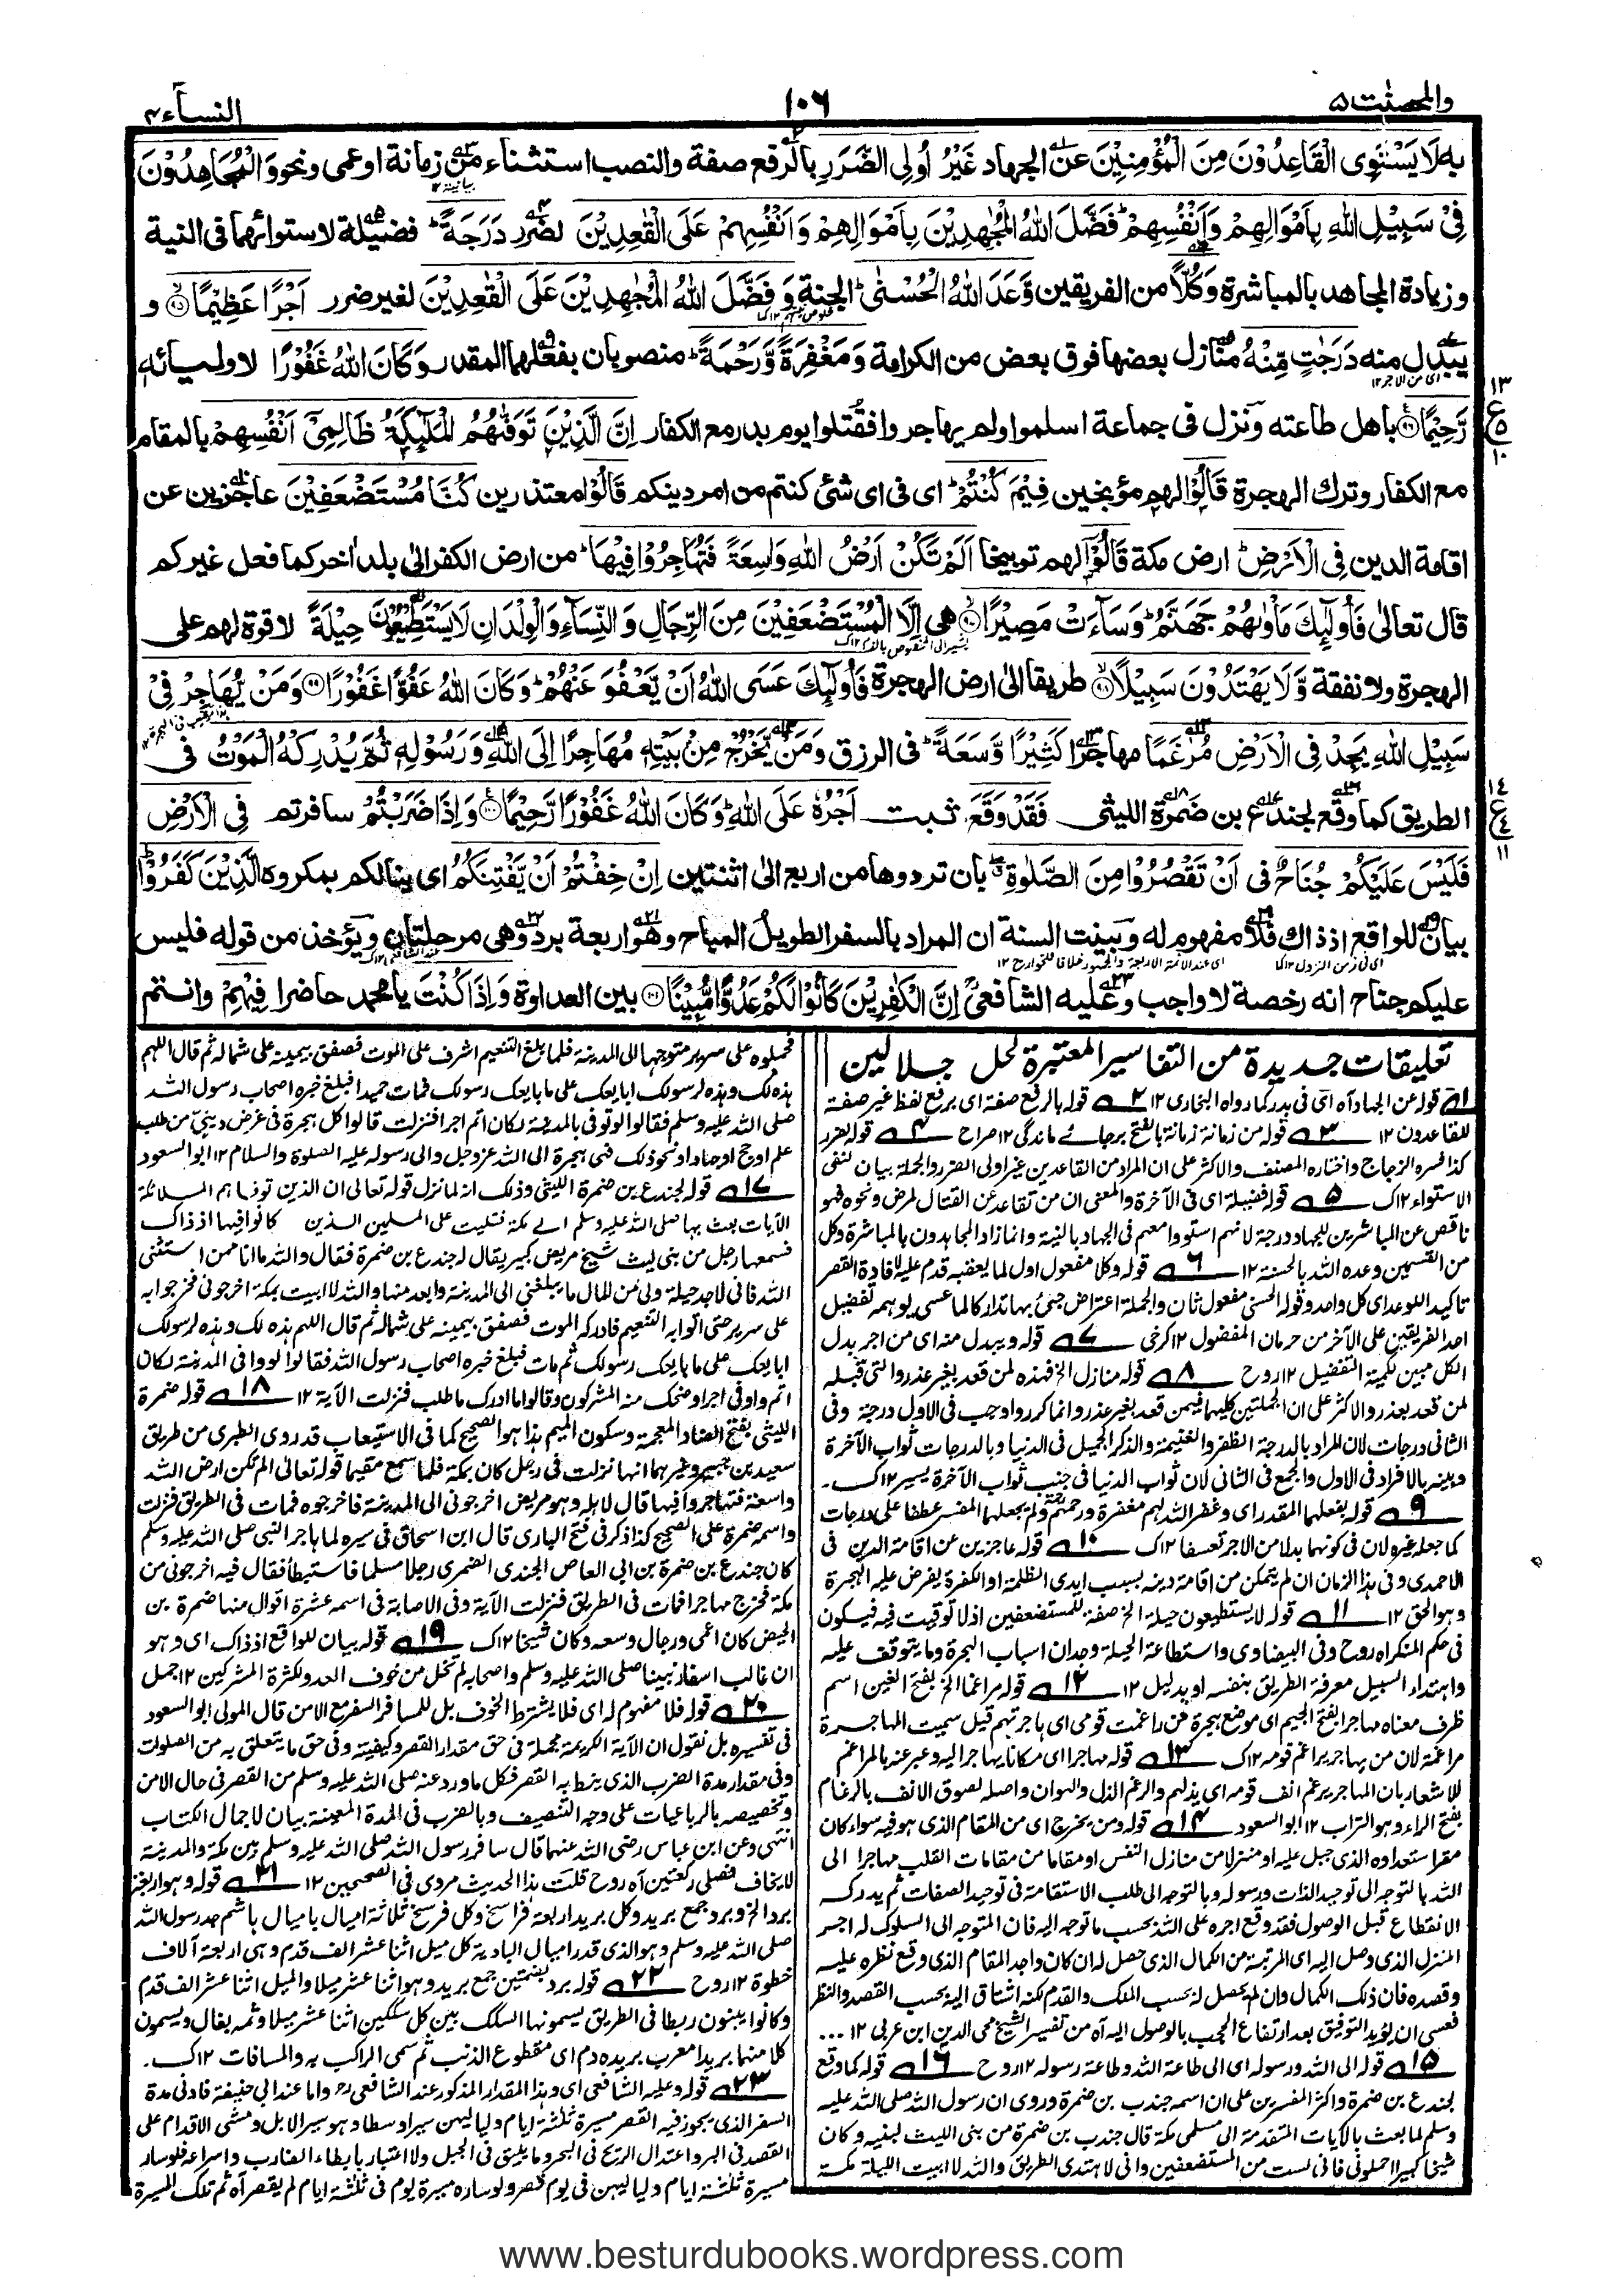 والمحصنٰت ۵
۱۰۶
النساء ۴
به لَا يَسْتَوِى الْقَاعِدُوْنَ مِنَ الْمُؤْمِنِيْنَ عن الجهاد غَيْرُ اُولِى الضَّرَرِ بالرفع صفة والنصب استثناء من زمانة او عمى ونحوه وَالْمُجَاهِدُوْنَ
فِىْ سَبِيْلِ اللّٰهِ بِاَمْوَالِهِمْ وَاَنْفُسِهِمْ فَضَّلَ اللّٰهُ الْمُجٰهِدِيْنَ بِاَمْوَالِهِمْ وَاَنْفُسِهِمْ عَلَى الْقٰعِدِيْنَ لضرر دَرَجَةً فضيلة لاستوائهما فى النية
وزيادة المجاهد بالمباشرة وَكُلًّا من الفريقين وَعَدَ اللّٰهُ الْحُسْنٰى الجنة وَفَضَّلَ اللّٰهُ الْمُجٰهِدِيْنَ عَلَى الْقٰعِدِيْنَ لغير ضرر اَجْرًا عَظِيْمًا ۹۵ و
يبدل منه دَرَجٰتٍ مِّنْهُ منازل بعضها فوق بعض من الكرامة وَمَغْفِرَةً وَّرَحْمَةً منصوبان بفعلهما المقدر وَكَانَ اللّٰهُ غَفُوْرًا لاوليائه
رَّحِيْمًا ۹۶ باهل طاعته ونزل فى جماعة اسلموا ولم يهاجروا فقتلوا يوم بدر مع الكفار اِنَّ الَّذِيْنَ تَوَفّٰهُمُ الْمَلٰٓئِكَةُ ظَالِمِىْٓ اَنْفُسِهِمْ بالمقام
مع الكفار وترك الهجرة قَالُوْا لهم مؤبخين فِيْمَ كُنْتُمْ اى فى اى شئ كنتم من امر دينكم قَالُوْا معتذرين كُنَّا مُسْتَضْعَفِيْنَ عاجزين عن
اقامة الدين فِى الْاَرْضِ ارض مكة قَالُوْٓا لهم توبيخا اَلَمْ تَكُنْ اَرْضُ اللّٰهِ وَاسِعَةً فَتُهَاجِرُوْا فِيْهَا من ارض الكفر الى بلد اخر كما فعل غيركم
قال تعالى فَاُولٰٓئِكَ مَاْوٰىهُمْ جَهَنَّمُ وَسَآءَتْ مَصِيْرًا ۹۷ هى اِلَّا الْمُسْتَضْعَفِيْنَ مِنَ الرِّجَالِ وَالنِّسَآءِ وَالْوِلْدَانِ لَا يَسْتَطِيْعُوْنَ حِيْلَةً لا قوة لهم على
الهجرة ولا نفقة وَّلَا يَهْتَدُوْنَ سَبِيْلًا ۹۸ طريقا الى ارض الهجرة فَاُولٰٓئِكَ عَسَى اللّٰهُ اَنْ يَّعْفُوَ عَنْهُمْ وَكَانَ اللّٰهُ عَفُوًّا غَفُوْرًا ۹۹ وَمَنْ يُّهَاجِرْ فِىْ
سَبِيْلِ اللّٰهِ يَجِدْ فِى الْاَرْضِ مُرٰغَمًا مهاجرا كَثِيْرًا وَّسَعَةً فى الرزق وَمَنْ يَّخْرُجْ مِنْۢ بَيْتِهٖ مُهَاجِرًا اِلَى اللّٰهِ وَرَسُوْلِهٖ ثُمَّ يُدْرِكْهُ الْمَوْتُ فى
الطريق كما وقع لجندع بن ضمرة الليثى فَقَدْ وَقَعَ ثبت اَجْرُهٗ عَلَى اللّٰهِ وَكَانَ اللّٰهُ غَفُوْرًا رَّحِيْمًا ۱۰۰ وَاِذَا ضَرَبْتُمْ سافرتم فِى الْاَرْضِ
فَلَيْسَ عَلَيْكُمْ جُنَاحٌ فى اَنْ تَقْصُرُوْا مِنَ الصَّلٰوةِ بان تردوها من اربع الى اثنتين اِنْ خِفْتُمْ اَنْ يَّفْتِنَكُمُ اى ينالكم بمكروه الَّذِيْنَ كَفَرُوْا
بيان للواقع اذ ذاك فلا مفهوم له وبينت السنة ان المراد بالسفر الطويل المباح وهو اربعة برد وهى مرحلتان ويؤخذ من قوله فليس
عليكم جناح انه رخصة لا واجب وعليه الشافعى اِنَّ الْكٰفِرِيْنَ كَانُوْا لَكُمْ عَدُوًّا مُّبِيْنًا ۱۰۱ بين العداوة وَاِذَا كُنْتَ يا محمد حاضرا فِيْهِمْ وانتم
تعليقات جديدة من التفاسير المعتبرة لحل جلالين
۱ قوله عن الجهاد آه اى فى بدر كما رواه البخارى ۱۲ ۲ قوله بالرفع صفة اى برفع لفظ غير صفة
للقاعدون ۱۲ ۳ قوله من زمانة زمانة بالفتح برجائے ماندگى ۱۲ صراح ۴ قوله لضرر
كذا فسره الزجاج واختاره المصنف والاكثر على ان المراد من القاعدين غير اولى الضرر والجملة بيان لنفى
الاستواء ۱۲ك ۵ قوله فضيلة اى فى الآخرة والمعنى ان من تقاعد عن القتال لمرض ونحوه فهو
ناقص عن المباشرين للجهاد درجة لانهم استووا معهم فى الجهاد بالنية وانما زاد المجاهدون بالمباشرة وكل
من القسمين وعده الله بالحسنة ۱۲ ۶ قوله وكلا مفعول اول لما يعقبه قدم عليه لافادة القصر
تاكيدا للوعد اى كل واحد وقوله الحسنى مفعول ثان والجملة اعتراض جئ بها تداركا لما عسى يوهمه تفضيل
احد الفريقين على الآخر من حرمان المفضول ۱۲ كرخى ۷ قوله ويبدل منه اى من اجر بدل
الكل مبين لكمية التفضيل ۱۲ روح ۸ قوله منازل الخ فهذه لمن قعد بغير عذر والتى قبله
لمن قعد بعذر والاكثر على ان الجملتين كليهما فيمن قعد بغير عذر وانما كرر واوجب فى الاول درجة وفى
الثانى درجات لان المراد بالدرجة الظفر والغنيمة والذكر الجميل فى الدنيا وبالدرجات ثواب الآخرة
وبينه بالافراد فى الاول والجمع فى الثانى لان ثواب الدنيا فى جنب ثواب الآخرة يسير ۱۲ك
۹ قوله بفعلهما المقدر اى وغفر الله لهم مغفرة ورحمهم رحمة ولم يجعلهما المفسر عطفا على درجات
كما جعله غيره لان فى كونهما بدلا من الاجر تعسفا ۱۲ك ۱۰ قوله عاجزين عن اقامة الدين فى
الاحمدى وفى هذا الزمان ان لم يتمكن من اقامة دينه بسبب ايدى الظلمة او الكفرة يفرض عليه الهجرة
وهو الحق ۱۲ ۱۱ قوله لا يستطيعون حيلة الخ صفة للمستضعفين اذ لا توقيت فيه فيكون
فى حكم المنكر اه روح وفى البيضاوى واستطاعة الحيلة وجدان اسباب الهجرة وما يتوقف عليه
واهتداء السبيل معرفة الطريق بنفسه او بدليل ۱۲ ۱۲ قوله مراغما الخ بفتح الغين اسم
ظرف معناه مهاجرا بفتح الجيم اى موضع هجرة من راغمت قومى اى هاجرتهم قيل سميت المهاجرة
مراغمة لان من يهاجر يراغم قومه ۱۲ك ۱۳ قوله مهاجرا اى مكانا يهاجر اليه وعبر عنه بالمراغم
للاشعار بان المهاجر يرغم انف قومه اى يذلهم والرغم الذل والهوان واصله لصوق الانف بالرغام
بفتح الراء وهو التراب ۱۲ ابو السعود ۱۴ قوله ومن يخرج اى من المقام الذى هو فيه سواء كان
مقر استعداده الذى جبل عليه او منزلا من منازل النفس او مقاما من مقامات القلب مهاجرا الى
الله بالتوجه الى توحيد الذات ورسوله وبالتوجه الى طلب الاستقامة فى توحيد الصفات ثم يدركه
الانقطاع قبل الوصول فقد وقع اجره على الله بحسب ما توجه اليه فان المتوجه الى السلوك له اجر
المنزل الذى وصل اليه اى المرتبة من الكمال الذى حصل له ان كان واجد المقام الذى وقع نظره عليه
وقصده فان ذلك الكمال وان لم يحصل له بحسب الملك والقدم لكنه اشتاق اليه بحسب القصد والنظر
فعسى ان يؤيد التوفيق بعد ارتفاع الحجب بالوصول اليه آه من تفسير الشيخ محى الدين ابن عربى ۱۲ ...
۱۵ قوله الى الله ورسوله اى الى طاعة الله وطاعة رسوله ۱۲ روح ۱۶ قوله كما وقع
لجندع بن ضمرة واكثر المفسرين على ان اسمه جندب بن ضمرة وروى ان رسول الله صلى الله عليه
وسلم لما بعث بالآيات المتقدمة الى مسلمى مكة قال جندب بن ضمرة من بنى الليث لبنيه وكان
شيخا كبيرا احملونى فانى لست من المستضعفين وانى لاهتدى الطريق والله لا ابيت الليلة مكة
فحملوه على سرير متوجها الى المدينة فلما بلغ التنعيم اشرف على الموت فصفق بيمينه على شماله ثم قال اللهم
هذه لك وهذه لرسولك ابايعك على ما بايعك رسولك فمات حميدا فبلغ خبره اصحاب رسول الله
صلى الله عليه وسلم فقالوا لو توفى بالمدينة لكان اتم اجرا فنزلت قالوا كل هجرة فى غرض دينى من طلب
علم او حج او جهاد او نحو ذلك فهى هجرة الى الله عز وجل والى رسوله عليه الصلوة والسلام ۱۲ ابو السعود
۱۷ قوله لجندع بن ضمرة الليثى وذلك انه لما نزل قوله تعالى ان الذين توفاهم الملائكة
الآيات بعث بها صلى الله عليه وسلم الى مكة فتليت على المسلمين الذين كانوا فيها اذ ذاك
فسمعها رجل من بنى ليث شيخ مريض كبير يقال له جندع بن ضمرة فقال والله ما انا ممن استثنى
الله فانى لاجد حيلة ولى من المال ما يبلغنى الى المدينة وابعد منها والله لا ابيت بمكة اخرجونى فخرجوا به
على سرير حتى اتوا به التنعيم فادركه الموت فصفق بيمينه على شماله ثم قال اللهم هذه لك وهذه لرسولك
ابايعك على ما بايعك رسولك ثم مات فبلغ خبره اصحاب رسول الله فقالوا لو وافى المدينة لكان
اتم واوفى اجرا وضحك منه المشركون وقالوا ما ادرك ما طلب فنزلت الآية ۱۲ ۱۸ قوله ضمرة
الليثى بفتح الضاد المعجمة وسكون الميم هذا هو الصحيح كما فى الاستيعاب قد روى الطبرى من طريق
سعيد بن جبير وغيرهما انها نزلت فى رجل كان بمكة فلما سمع مقيما قوله تعالى الم تكن ارض الله
واسعة فتهاجروا فيها قال لاهله وهو مريض اخرجونى الى المدينة فاخرجوه فمات فى الطريق فنزلت
واسمه ضمرة على الصحيح كذا ذكر فى فتح البارى قال ابن اسحاق فى سيره لما هاجر النبى صلى الله عليه وسلم
كان جندع بن ضمرة بن ابى العاص الجندى الضمرى رجلا مسلما فاستبطأ فقال فيه اخرجونى من
مكة فخرج مهاجرا فمات فى الطريق فنزلت الآية وفى الاصابة فى اسمه عشرة اقوال منها ضمرة بن
العيص كان اعمى ورجال وسعه وكان شيخا ۱۲ك ۱۹ قوله بيان للواقع اذ ذاك اى وهو
ان غالب اسفار نبينا صلى الله عليه وسلم واصحابه لم تخل من خوف العدو لكثرة المشركين ۱۲ جمل
۲۰ قوله فلا مفهوم له اى فلا يشترط الخوف بل للمسافر السفر مع الامن قال المولى ابو السعود
فى تفسيره بل نقول ان الآية الكريمة مجملة فى حق مقدار القصر وكيفيته وفى حق ما يتعلق به من الصلوات
وفى مقدار مدة الضرب الذى ينط به القصر فكل ما ورد عنه صلى الله عليه وسلم من القصر فى حال الامن
وتخصيصه بالرباعيات على وجه التنصيف وبالضرب فى المدة المعينة بيان لاجمال الكتاب
انتهى وعن ابن عباس رضى الله عنهما قال سافر رسول الله صلى الله عليه وسلم بين مكة والمدينة
لا يخاف فصلى ركعتين آه روح قلت هذا الحديث مروى فى الصحيحين ۱۲ ۲۱ قوله وهو اربعة
برد الخ وبرد جمع بريد وكل بريد اربعة فراسخ وكل فرسخ ثلاثة اميال باميال هاشم جد رسول الله
صلى الله عليه وسلم وهو الذى قدر اميال البادية كل ميل اثنا عشر الف قدم وهى اربعة آلاف
خطوة ۱۲ روح ۲۲ قوله برد بضمتين جمع بريد وهو اثنا عشر ميلا والميل اثنا عشر الف قدم
وكانوا يبنون ربطا فى الطريق يسمونها السكك بين كل سكتين اثنا عشر ميلا وثمه بغال ويسمون
كلا منهما بريدا معرب بريده دم اى مقطوع الذنب ثم سمى الراكب به والمسافات ۱۲ك
۲۳ قوله وعليه الشافعى اى وهذا المقدار المذكور عند الشافعى رح واما عند ابى حنيفة فادنى مدة
السفر الذى يجوز فيه القصر مسيرة ثلثة ايام ولياليهن سيرا وسطا وهو سير الابل ومشى الاقدام على
القصد فى البر واعتدال الريح فى البحر وما يليق فى الجبل ولا اعتبار بابطاء الضارب واسراعه فلو سار
مسيرة ثلثة ايام ولياليهن فى يوم قصر ولو ساره مسيرة يوم فى ثلثة ايام لم يقصر آه ثم تلك المسيرة
www.besturdubooks.wordpress.com